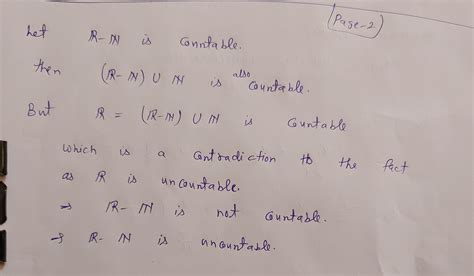 (Page-2)
Let R-N is Conntable.
then (R-N) U N is also Countable.
But R = (R-N) U N is Countable
which is a Contradiction to the fact
as R is uncountable.
→ R-N is not Countable.
→ R-N is uncountable.